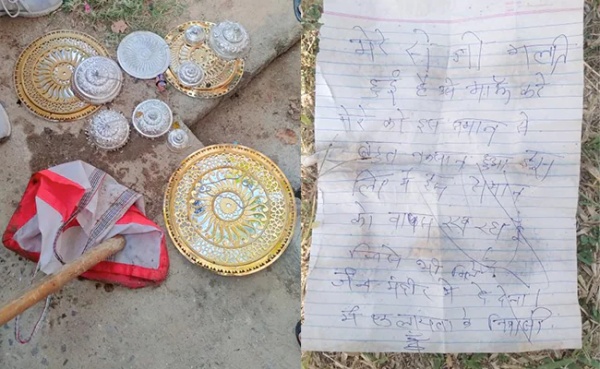 मेरे से जो गलती
हुई है मे माफ करे
मेरे को इस समान से
बहुत नुकसान हुआ इस
लिए मे इस समान
को वापस रख रहा हु
जिसे भी मिले
जैन मंदीर मे दे देना।
में के निवासी